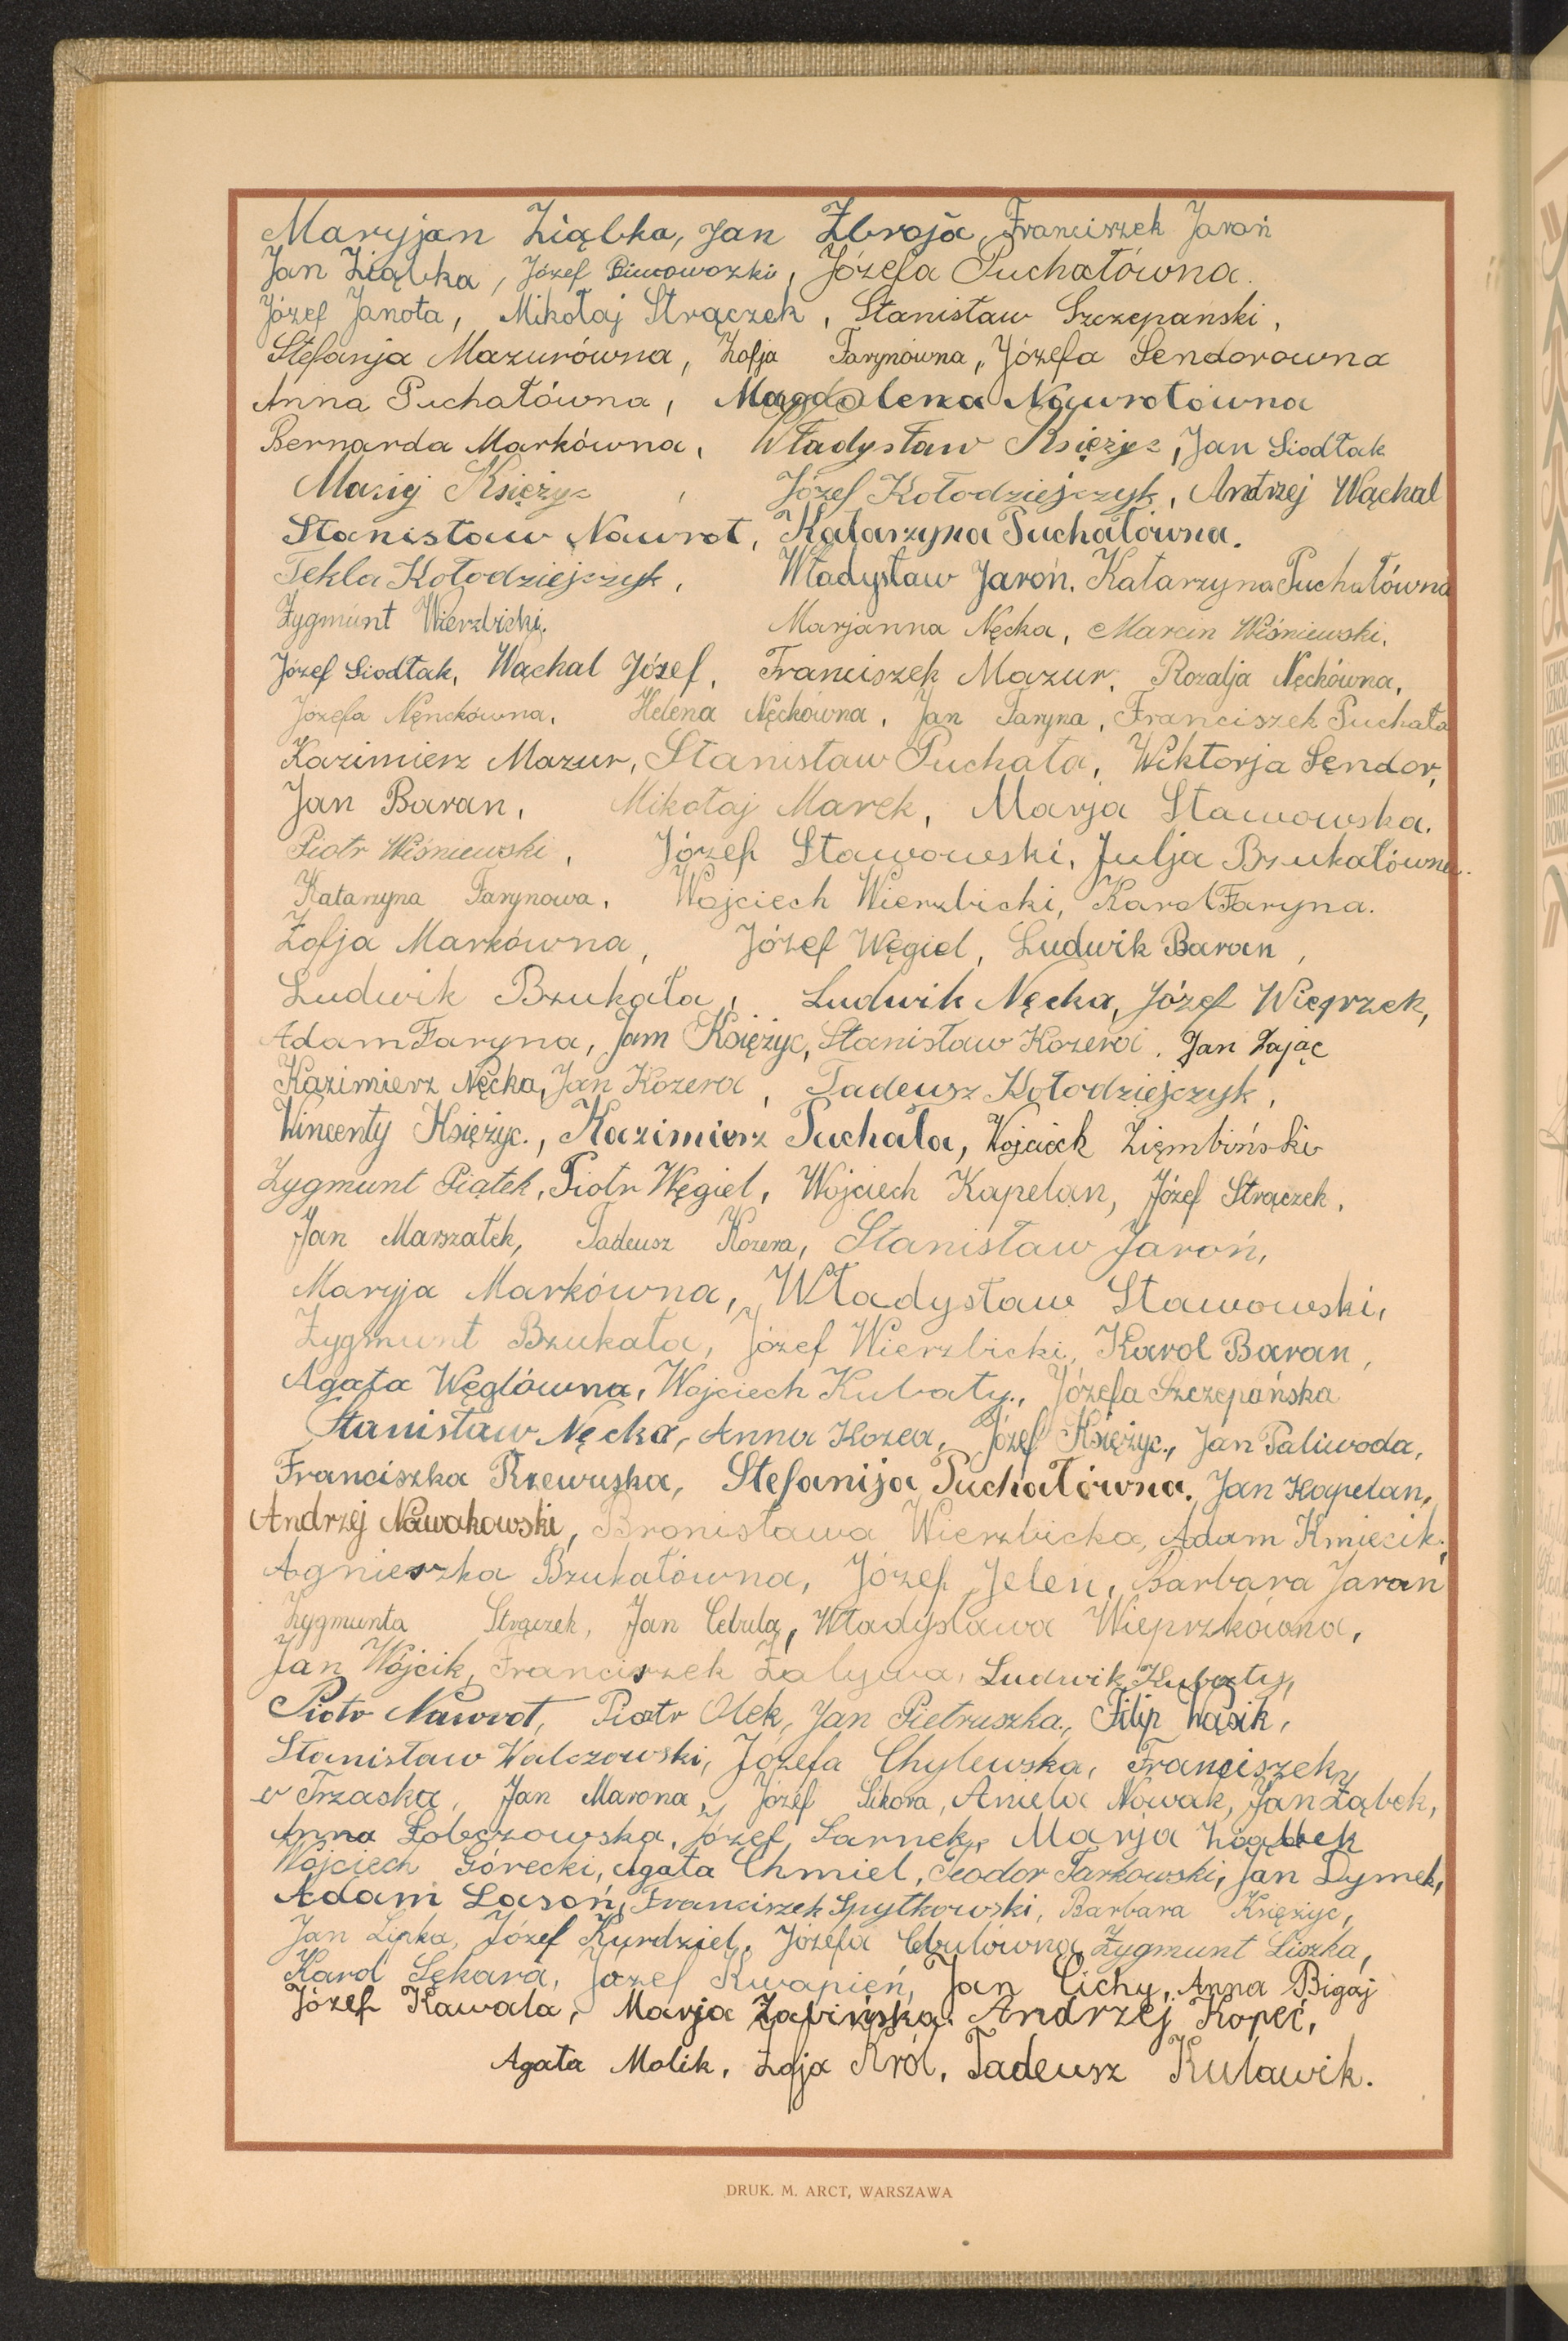 Maryjan Ziąbka, Jan Zbroja, Franciszek Jaroń
Jan Ziąbka, Józef Piwowarski, Józefa Puchałówna.
Józef Janota, Mikołaj Strączek, Stanisław Szczepański,
Stefanja Mazurówna, Zofja Farynówna, Józefa Sendorowna
Anna Puchałówna, Magdalena Nawrotówna
Bernarda Markówna, Władysław Księżyc, Jan Siodłak
Maciej Księżyc, Józef Kołodziejczyk, Andrzej Wąchal
Stanisław Nawrot, Katarzyna Puchałówna.
Tekla Kołodziejczyk, Władysław Jaroń, Katarzyna Puchałówna
Zygmunt Wierzbicki, Marjanna Nęcka, Marcin Wiśniewski,
Józef Siodłak, Wąchal Józef, Franciszek Mazur, Rozalja Nęckówna,
Józefa Nęnckówna, Helena Nęckówna, Jan Faryna, Franciszek Puchała
Kazimierz Mazur, Stanisław Puchała, Wiktorja Sendor,
Jan Baran, Mikołaj Marek, Marja Stawowska,
Piotr Wiśniewski, Józef Stawowski, Julja Bzukałówna.
Katarzyna Farynowa, Wojciech Wierzbicki, Karol Faryna.
Zofja Markówna, Józef Węgiel, Ludwik Baran,
Ludwik Bzukała, Ludwik Nęcka, Józef Wieprzek,
Adam Faryna, Jan Księżyc, Stanisław Kozera, Jan Zając
Kazimierz Nęcka, Jan Kozera, Tadeusz Kołodziejczyk,
Wincenty Księżyc., Kazimierz Puchała, Wojciech Ziembiński
Zygmunt Piątek, Piotr Węgiel, Wojciech Kapelan, Józef Strączek,
Jan Marszałek, Tadeusz Kozera, Stanisław Jaroń,
Maryja Markówna, Władysław Stawowski,
Zygmunt Bzukała, Józef Wierzbicki, Karol Baran,
Agata Węglówna, Wojciech Kubaty., Józefa Szczepańska
Stanisław Nęcka, Anna Kozea, Józef Księżyc., Jan Paliwoda,
Franciszka Rzewuska, Stefanija Puchałówna, Jan Kapelan,
Andrzej Nawakowski, Bronisława Wierzbicka, Adam Kmiecik,
Agnieszka Bzukałówna, Józef Jeleń, Barbara Jaroń
Zygmunta Strączek, Jan Cebula, Władysława Wieprzkówna,
Jan Wójcik, Franciszek Zalywa, Ludwik Kubaty,
Piotr Nawrot, Piotr Olek, Jan Pietruszka., Filip Wąsik,
Stanisław Walczowski, Józefa Chylewska, Franciszek
Trzaska, Jan Marona, Józef Sikora, Aniela Nowak, Jan Ząbek,
Anna Łobczowska, Józef Sarnek, Marja Ziąbek
Wojciech Górecki, Agata Chmiel, Teodor Tarkowski, Jan Dymek,
Adam Lasoń, Franciszek Spytkowski, Barbara Księżyc,
Jan Lipka, Józef Kurdziel, Józefa Cebulówna, Zygmunt Liszka,
Karol Sękara, Józef Kwapień, Jan Cichy, Anna Bigaj
Józef Kawala, Marja Żabińska. Andrzej Kopeć,
Agata Molik, Zofja Król, Tadeusz Kulawik.
DRUK. M. ARCT, WARSZAWA